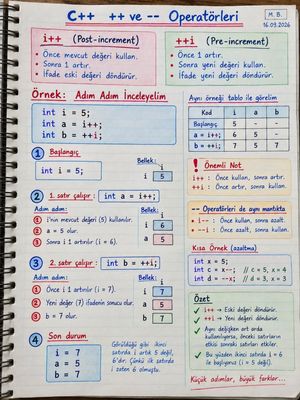 C++ ++ ve -- Operatörleri
M. B.
16.03.2026
i++ (Post-increment)
• Önce mevcut değeri kullan.
• Sonra 1 artır.
• İfade eski değeri döndürür.
++i (Pre-increment)
• Önce 1 artır.
• Sonra yeni değeri kullan.
• İfade yeni değeri döndürür.
Örnek: Adım Adım İnceleyelim
int i = 5;
int a = i++;
int b = ++i;
1 Başlangıç
int i = 5;
Bellek:
i 5
2 1. satır çalışır: int a = i++;
Adım adım:
1 i'nin mevcut değeri (5) kullanılır.
2 a = 5 olur.
3 Sonra i 1 artırılır (i = 6).
Bellek:
i 6
a 5
3 2. satır çalışır: int b = ++i;
Adım adım:
1 Önce i 1 artırılır (i = 7).
2 Yeni değer (7) ifadenin sonucu olur.
3 b = 7 olur.
Bellek:
i 7
a 5
b 7
4 Son durum
i = 7
a = 5
b = 7
Görüldüğü gibi ikinci
satırda i artık 5 değil,
6'dır. Çünkü ilk satırda
i zaten 6 olmuştu.
Aynı örneği tablo ile görelim
Kod i a b
Başlangıç 5 - -
a = i++; 6 5 -
b = ++i; 7 5 7
! Önemli Not
i++ : Önce kullan, sonra artır.
++i : Önce artır, sonra kullan.
-- Operatörleri de aynı mantıkta
• i-- : Önce kullan, sonra azalt.
• --i : Önce azalt, sonra kullan.
Kısa Örnek (azaltma)
int x = 5;
int c = x--; // c = 5, x = 4
int d = --x; // d = 3, x = 3
Özet
✓ i++ → Eski değeri döndürür.
✓ ++i → Yeni değeri döndürür.
✓ Aynı değişken art arda
kullanılıyorsa, önceki satırların
etkisi sonraki satırları etkiler.
✓ Bu yüzden ikinci satırda i = 6 ile
başlıyor ve 7 oluyor.
Küçük adımlar, büyük farklar...